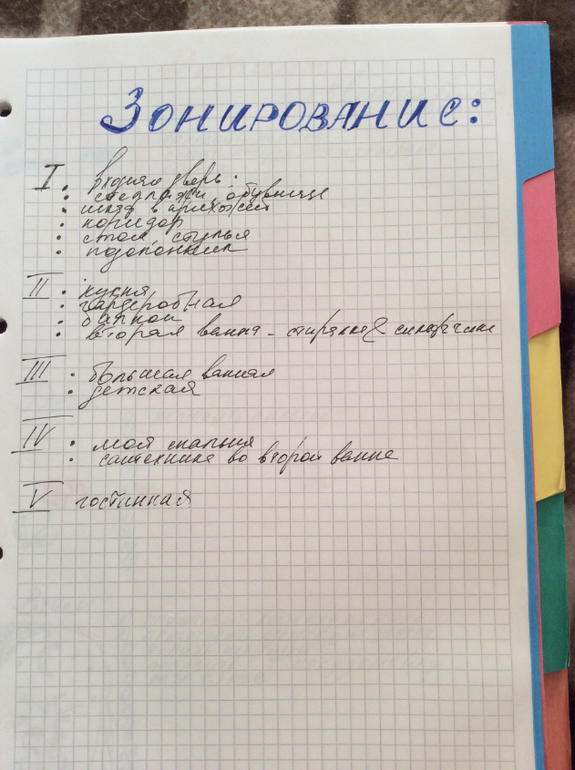 Зонирование:
I • входная дверь:
• стеллажи, обувница
• шкаф в прихожей
• коридор
• стол, стулья
• подоконник
II • кухня
• гардеробная
• балкон
• вторая ванна - стиралка &
III • большая ванная
• детская
IV • моя спальня
• сантехника во второй ванне
V гостинная